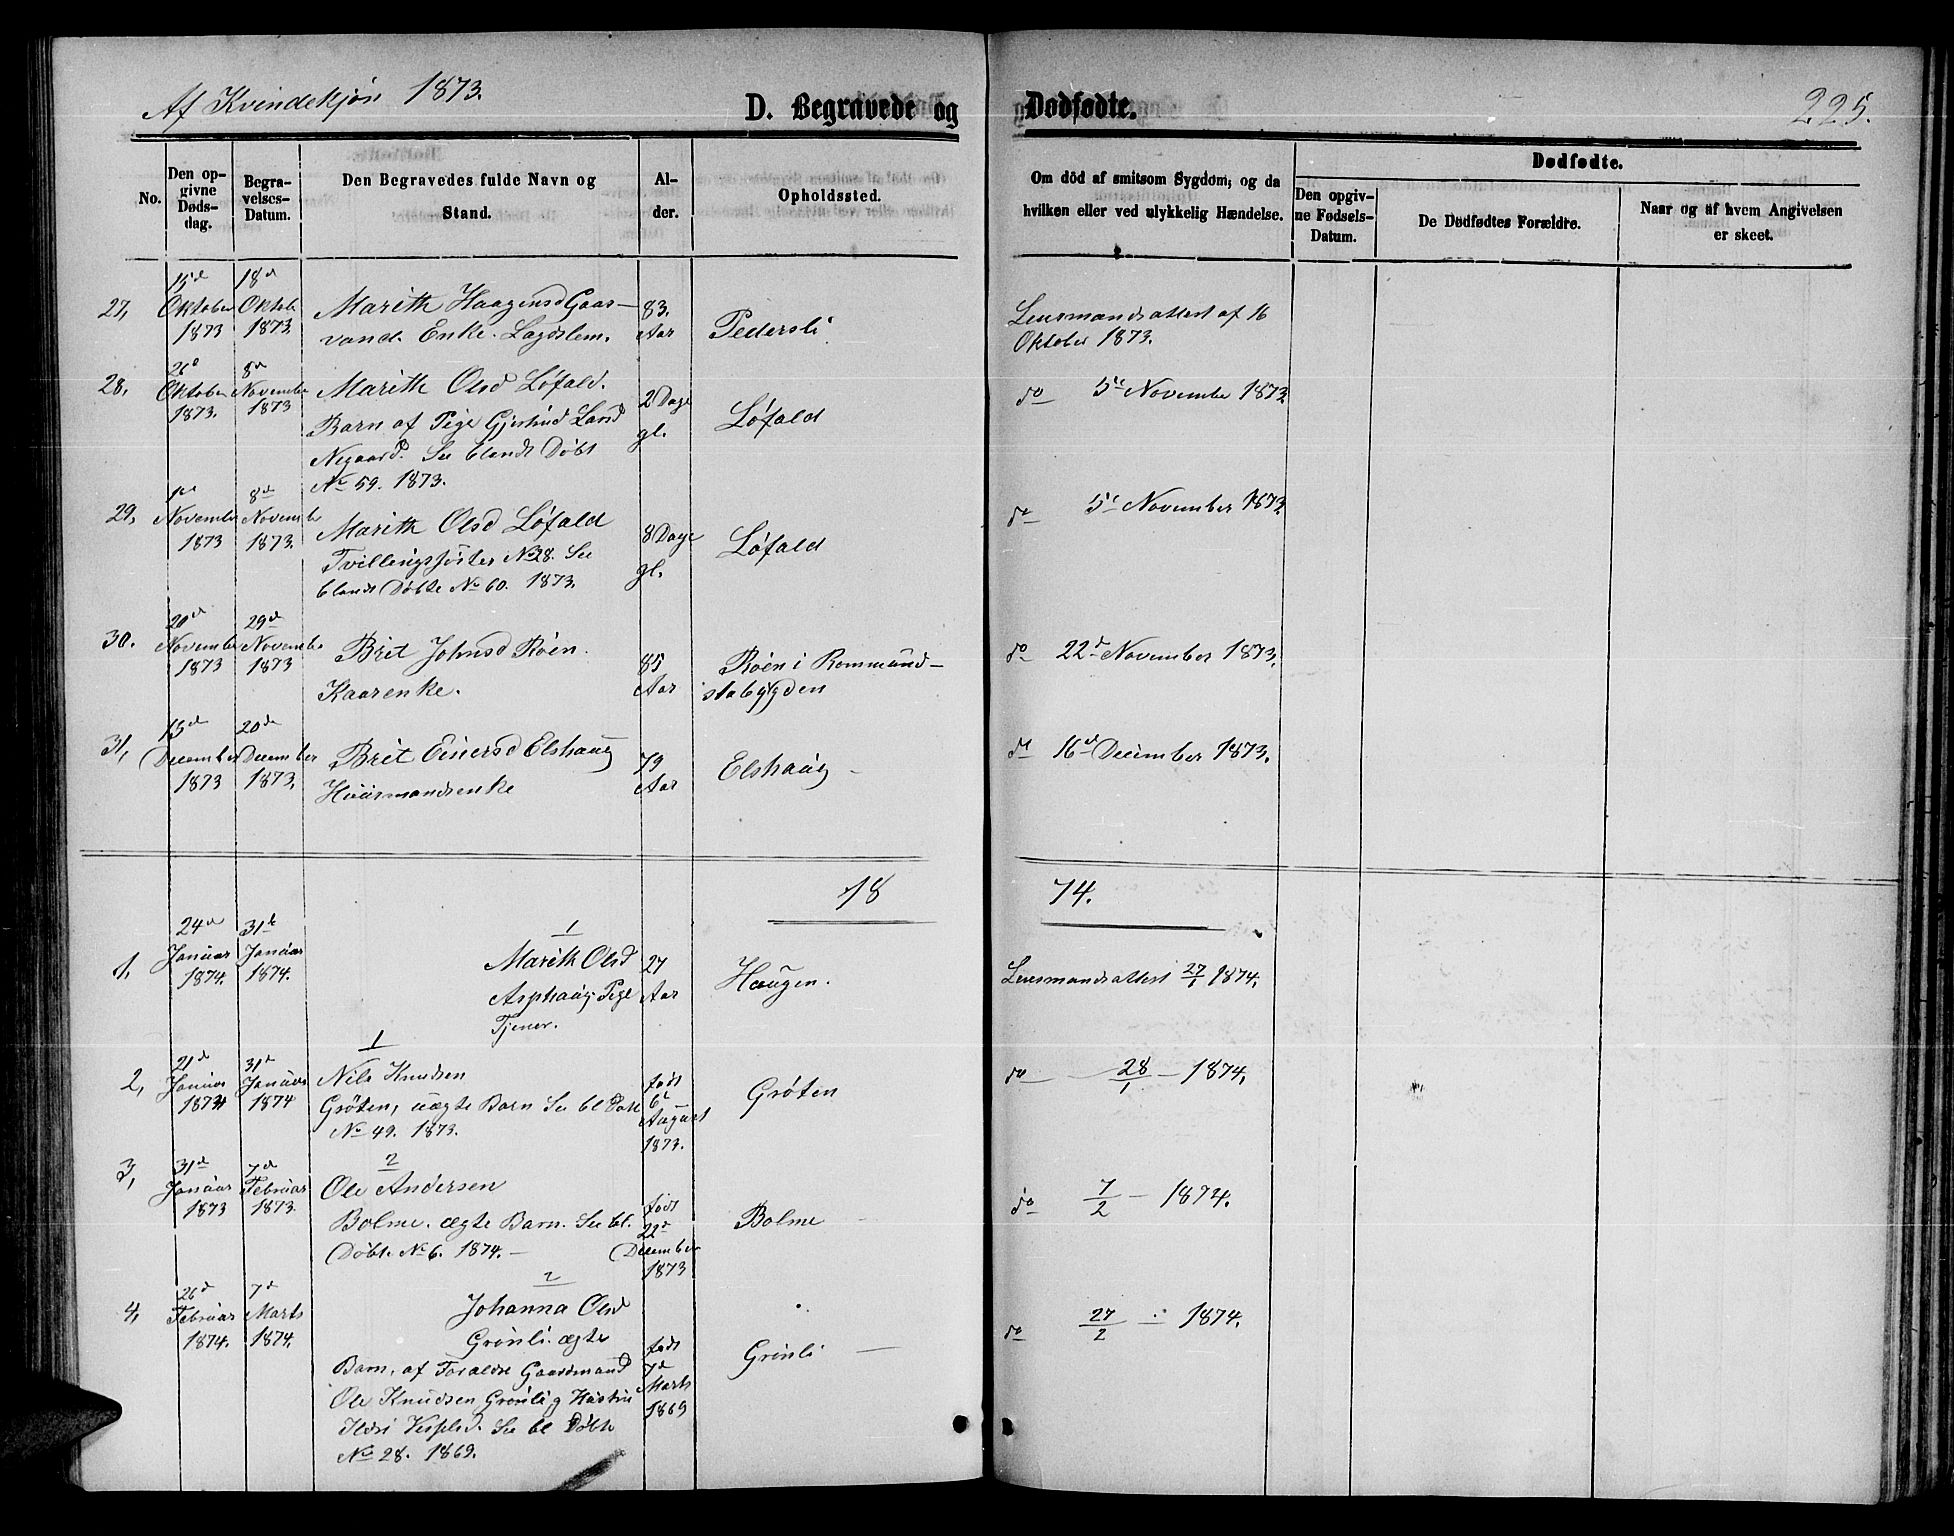 Af Kvindekjøn 1873.
D. Begravede og
Dødfødte.
225.
No.
Den op-
givne
Døds-
dag.
Begra-
velses-
Datum.
Den Begravedes fulde Navn og
Stand.
Al-
der.
Opholdssted.
Om död af smitsom Sygdom, og da
hvilken eller ved ulykkelig Hændelse.
Dødfødte.
Den opgiv-
ne Fødsels-
Datum.
De Dødfødtes Forældre.
Naar og af hvem Angivelsen
er skeet.
27, 15d Oktober 1873 18d Oktobe 1873.
Marith Haagensd Gaas-
vand. Enke. Lagdslem.
83. Aar
Pedersli
Lensmandsattest af 16
Oktober 1873.
28, 26d Oktober 1873. 8d November 1873
Marith Olsd Løfald.
Barn af Pige Gjertrud Larsd
Negaard. See blandt Døbt
No 59. 1873.
2 Dage gl.
Løfald
do 5te November 1873
29, 1ste November 1873 8de November 1873.
Marith Olsd Løfald
Tvillingsøster No 28. See
blandt Døbte No 60. 1873.
8 Dage gl.
Løfald
do 5te November 1873
30. 20d November 1873 29d November 1873
Brit Johnsd Röen.
Kaarenke.
85 Aar
Röen i Rommund-
stabygden
do 22d November 1873.
31, 15d December 1873 20de December 1873.
Brit Einersd Elshaug
Huusmandsenke
79 Aar
Elshaug
do 16d December 1873.
18
74.
1, 24d Januar 1874. 31te Januar 1874.
1
Marith Olsd
Asphaug Pige
Tjener.
27 Aar
Haugen.
Lensmandsattest 27/1 1874.
2, 21d Januar 31d Januar 1874
1
Nils Knudsen
Grøten, uægte Barn See bl Døbt
No 49. 1873.
født 6te August 1873.
Grøten
do 28/1 - 1874.
3, 31d Januar 1873 7d Februar 1873.
2
Ole Andersen
Bolme. ægte Barn. See bl.
Døbte No 6. 1874. -
født 22d December 1873
Bolme
do 7/2 - 1874.
4, 26d Februar 1874. 7d Marts 1874.
2
Johanna Olsd
Grønli. ægte
Barn, af Forældre Gaardmand
Ole Knudsen Grønli og Hustru
Ildri See bl Døbte
No 28. 1869.
født 7d Marts 1869
Grønli
do 27/2 - 1874.